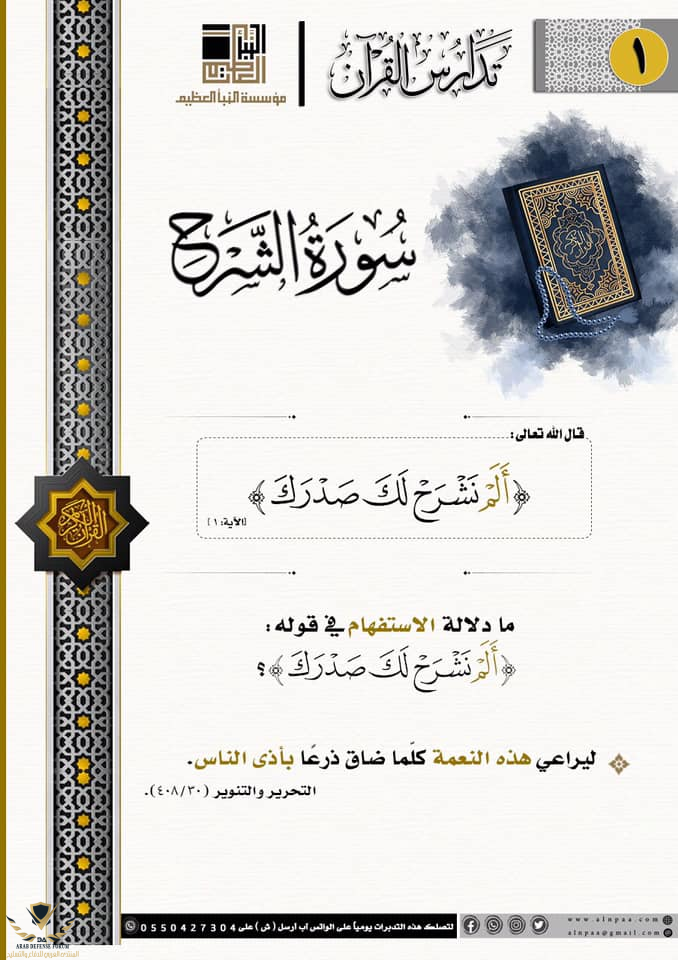 ١
تَدَارُسُ القُرْآن
النبأ العظيم
مؤسسة النبأ العظيم
سُورَةُ الشَّرْحِ
قال الله تعالى:
﴿أَلَمْ نَشْرَحْ لَكَ صَدْرَكَ﴾
[الآية: ١]
القرآن الكريم
ما دلالة الاستفهام في قوله:
﴿أَلَمْ نَشْرَحْ لَكَ صَدْرَكَ﴾؟
ليراعي هذه النعمة كلّما ضاق ذرعًا بأذى الناس.
التحرير والتنوير (٤٠٨/٣٠).
لتصلك هذه التدبرات يومياً على الواتس آب أرسل (ش) على 0550427304
www.alnpaa.com
alnpaa@gmail.com
ARAB DEFENSE FORUM
المنتدى العربي للدفاع والتسليح